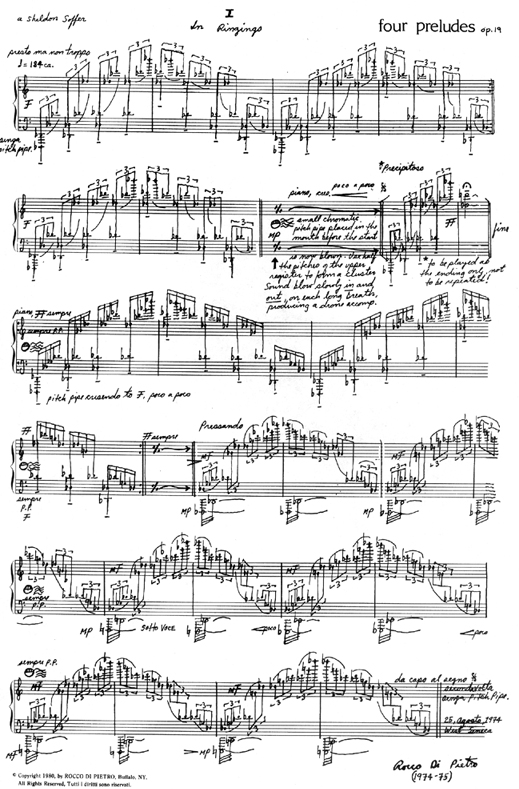 a Sheldon Soffer
I
In Ringings
four preludes op.19
presto ma non troppo
♩= 184 ca.
F
senza
pitch pipe.
F
piano, cresc. poco a poco
*Precipitoso
small chromatic
pitch pipe placed in the
mouth before the start
MP
FF
fine
is now blown. Use half
the pitches of the upper
register to form a cluster
Sound blow slowly in and
out, on each long breath,
producing a drone accomp.
* to be played as
the ending only, not
to be repeated!
piano, FF sempre
sempre P.P.
pitch pipe crescendo to F, poco a poco
FF
FF sempre
Pressando
MF
MF
sempre
P.P.
F
MP
MP
MF
MF
sempre
P.P.
MP
Sotto Voce
poco
poco
sempre P.P.
MF
MF
MP
MP
da capo al segno
seconda volta
senza Pitch Pipe.
25, Agosto, 1974
West Seneca
Rocco Di Pietro
(1974-75)
© Copyright 1980, by ROCCO DI PIETRO, Buffalo, NY.
All Rights Reserved, Tutti i diritti sono riservati.